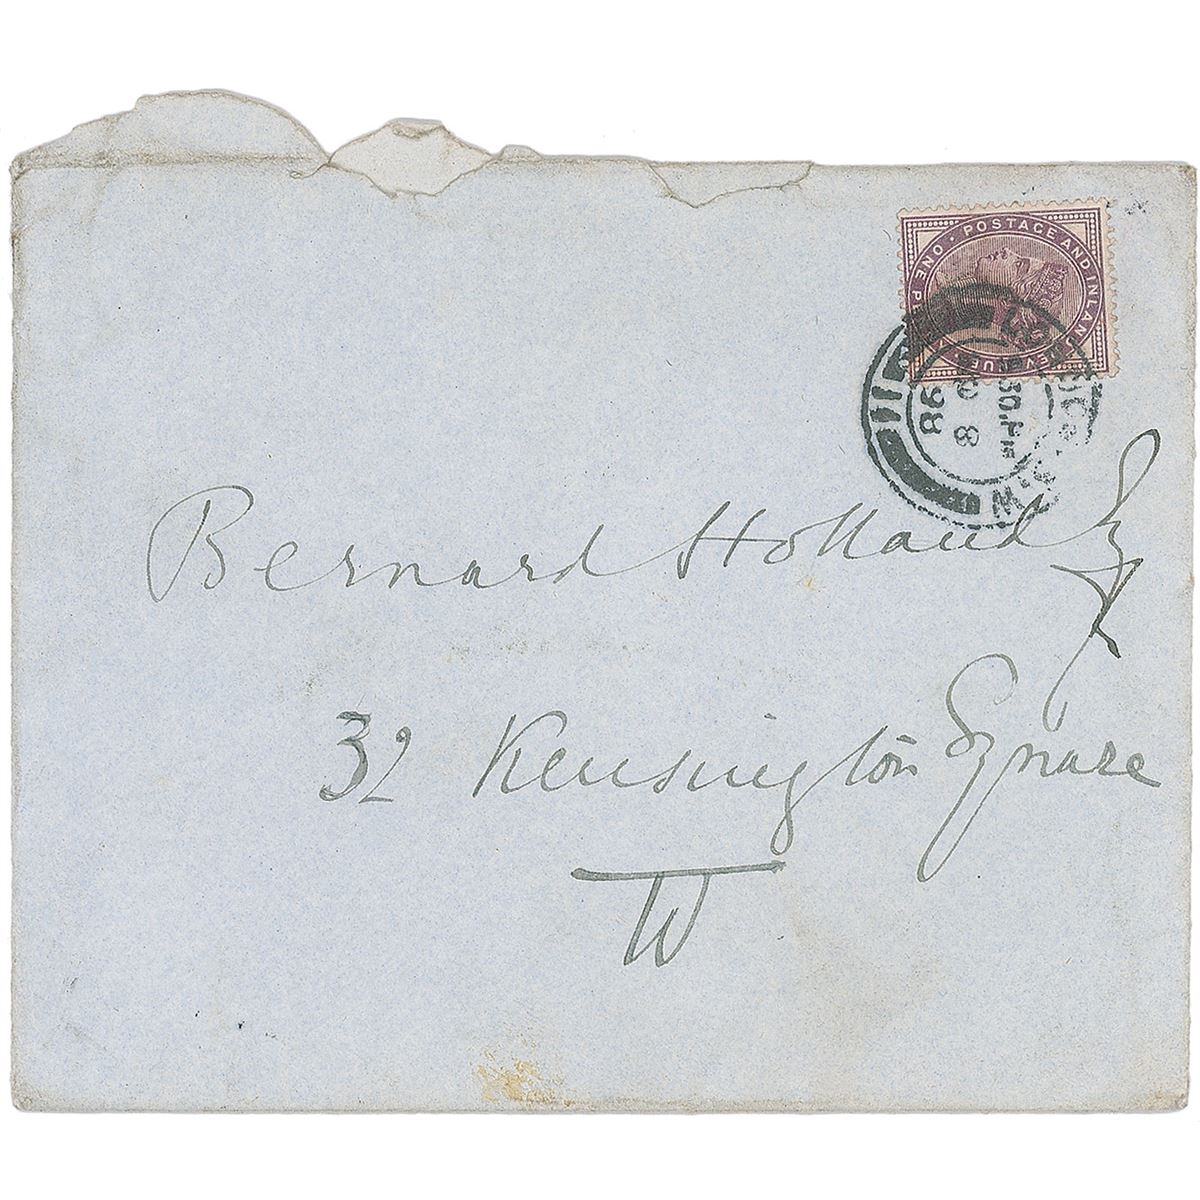 ONE PENNY · POSTAGE AND INLAND REVENUE ·
S.W
30.PM
8
98
Bernard Holland Esq
32 Kensington Square
W